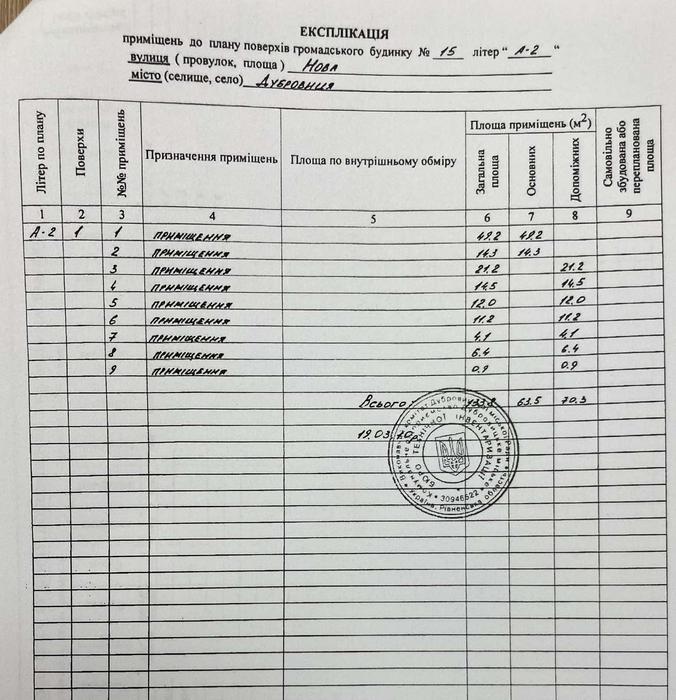 ЕКСПЛІКАЦІЯ
приміщень до плану поверхів громадського будинку № 15 літер " А-2 "
вулиця ( провулок, площа ) Нова
місто (селище, село) Дубровиця
Літер по плану Поверхи №№ приміщень Призначення приміщень Площа по внутрішньому обміру Площа приміщень (м2) Самовільно збудована або перепланована площа
Загальна площа Основних Допоміжних
1 2 3 4 5 6 7 8 9
А-2 1 1 приміщення 49.2 49.2
2 приміщення 14.3 14.3
3 приміщення 21.2 21.2
4 приміщення 14.5 14.5
5 приміщення 12.0 12.0
6 приміщення 11.2 11.2
7 приміщення 4.1 4.1
8 приміщення 6.4 6.4
9 приміщення 0.9 0.9
Всього: 133.8 63.5 70.3
19.03.
БЮРО ТЕХНІЧНОЇ ІНВЕНТАРИЗАЦІЇ
* 30946522 *
Україна, Рівненська область